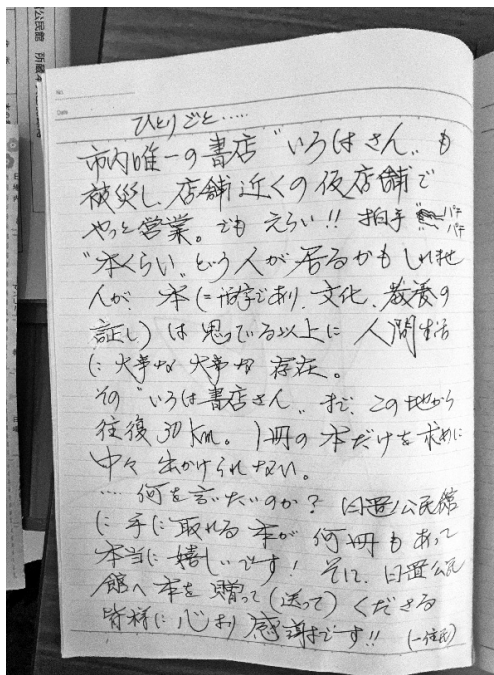 公民館 所蔵
No.
Date
ひとりごと……
市内唯一の書店〝いろはさん〟も
被災し、店舗近くの仮店舗で
やっと営業。でも えらい!! 拍手 パチパチ
〝本くらい〟という人が居るかもしれませ
んが、本(=活字であり、文化、教養の
証し)は思ってる以上に人間生活
に大事な大事な存在。
その〝いろは書店さん〟まで、この地から
往復30km。1冊の本だけを求めに
中々出かけられない。
……何を言いたいのか? 日置公民館
に手に取れる本が何冊もあって
本当に嬉しいです! そして、日置公民
館へ本を贈って(送って)くださる
皆様に心より感謝です!! (一住民)